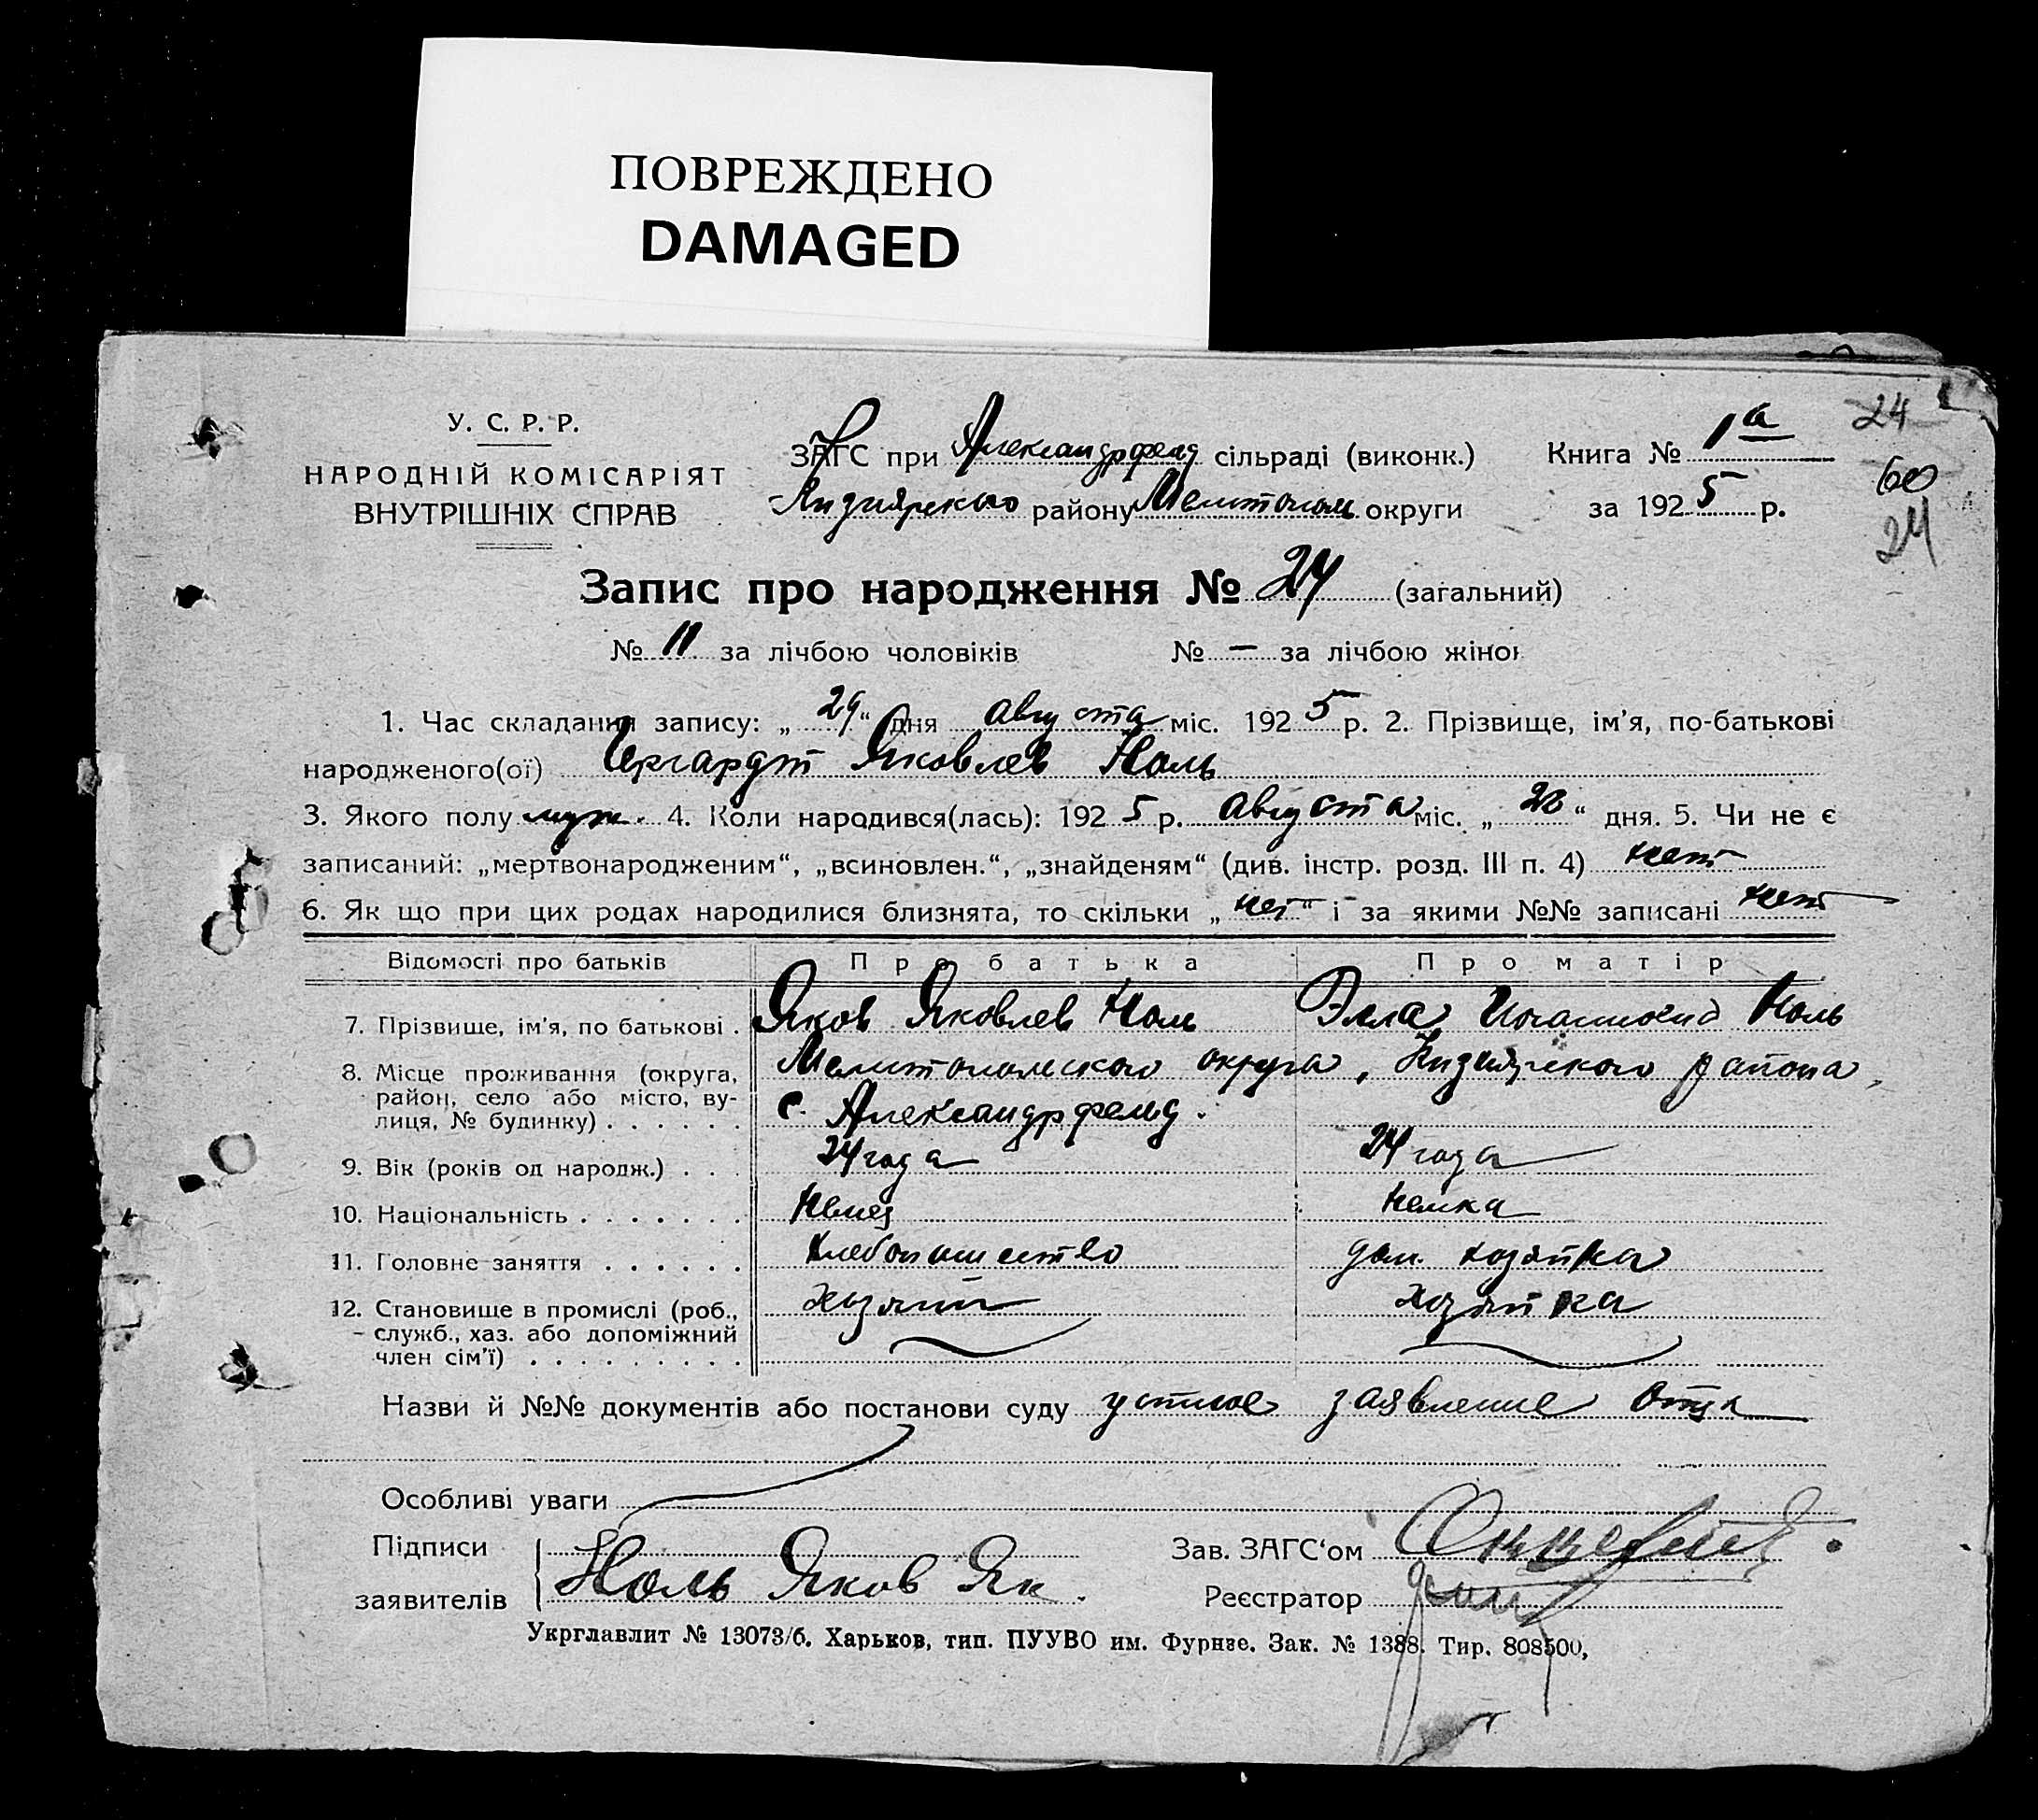 ПОВРЕЖДЕНО
DAMAGED
У. С. Р. Р.
НАРОДНІЙ КОМІСАРІЯТ
ВНУТРІШНІХ СПРАВ
ЗАГС при Александрфельд сільраді (виконк.)
району Мелитополь округи
Книга № 1а
за 1925 р.
24
60
24
Запис про народження № 24 (загальний)
№ 11 за лічбою чоловіків № — за лічбою жінок
1. Час складання запису: „29“ дня августа міс. 1925 р. 2. Прізвище, ім’я, по-батькові
народженого(ої) Гергардт ЯковлевНоль
3. Якого полу муж. 4. Коли народився(лась): 1925 р. августа міс. „28“ дня. 5. Чи не є
записаний: „мертвонародженим“, „всиновлен.“, „знайденям“ (див. інстр. розд. III п. 4) нет
6. Як що при цих родах народилися близнята, то скільки „нет“ і за якими №№ записані нет
Відомості про батьків Про батька Про матір
7. Прізвище, ім’я, по батькові . Яков Яковлев Ноль Элла Ноль
8. Місце проживання (округа, район, село або місто, вулиця, № будинку) . . . . . . Мелитопольского округа, Кизиярского района,
с. Александрфельд.
9. Вік (років од народж.) . . 24 года 24 года
10. Національність . . . . . . . Немец Немка
11. Головне заняття . . . . . . Хлебопашество дом. хозяйка
12. Становище в промислі (роб., служб., хаз. або допоміжний член сім’ї) . . . . . . . . . хозяин хозяйка
Назви й №№ документів або постанови суду устное заявление отца
Особливі уваги
Підписи
заявителів Ноль Яков Як.
Зав. ЗАГС‘ом
Реєстратор
Укрглавлит № 13073/б. Харьков, тип. ПУУВО им. Фурнзе. Зак. № 1388. Тир. 808500,